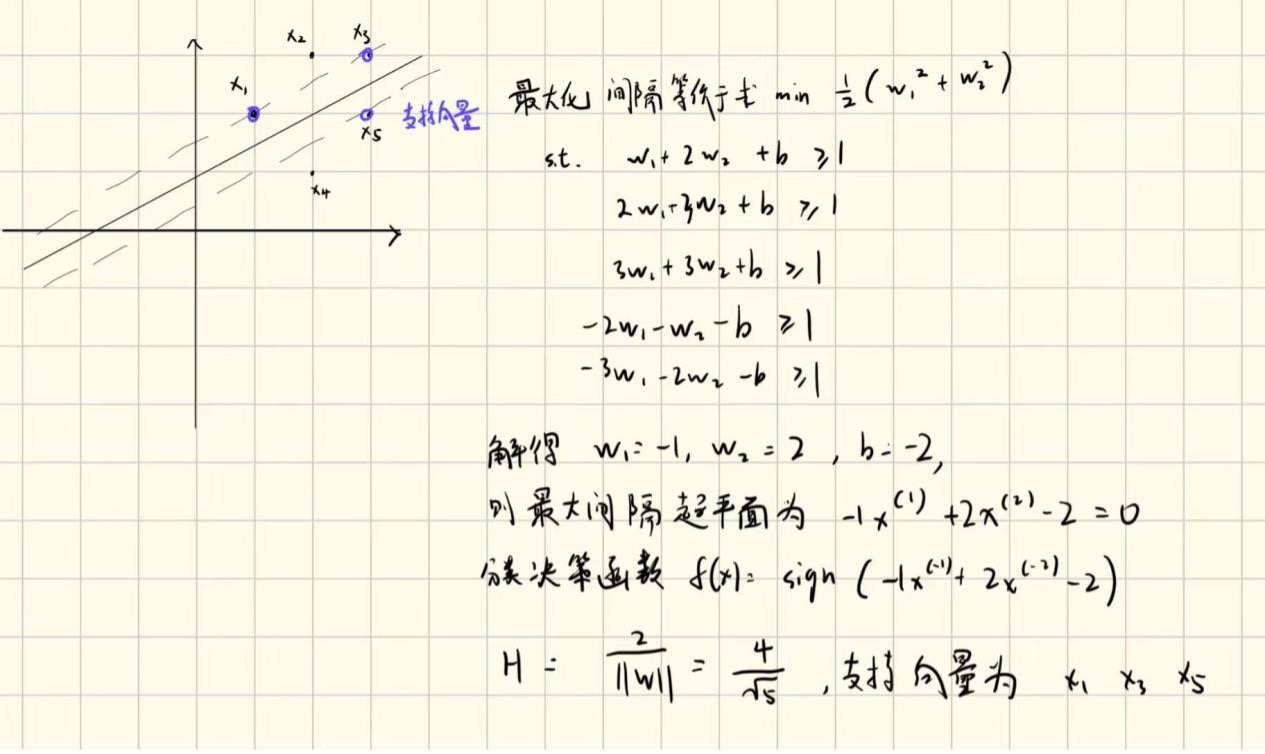 x₂
x₃
x₁
x₅
支持向量
x₄
最大化 间隔等价于求 min 1/2 (w₁² + w₂²)
s.t. w₁ + 2w₂ + b ≥ 1
2w₁ + 3w₂ + b ≥ 1
3w₁ + 3w₂ + b ≥ 1
-2w₁ - w₂ - b ≥ 1
-3w₁ - 2w₂ - b ≥ 1
解得 w₁ = -1, w₂ = 2, b = -2,
则最大间隔超平面为 -1x⁽¹⁾ + 2x⁽²⁾ - 2 = 0
分类决策函数 f(x) = sign (-1x⁽⁻¹⁾ + 2x⁽⁻²⁾ - 2)
H = 2/||w|| = 4/√5 , 支持向量为 x₁ x₃ x₅